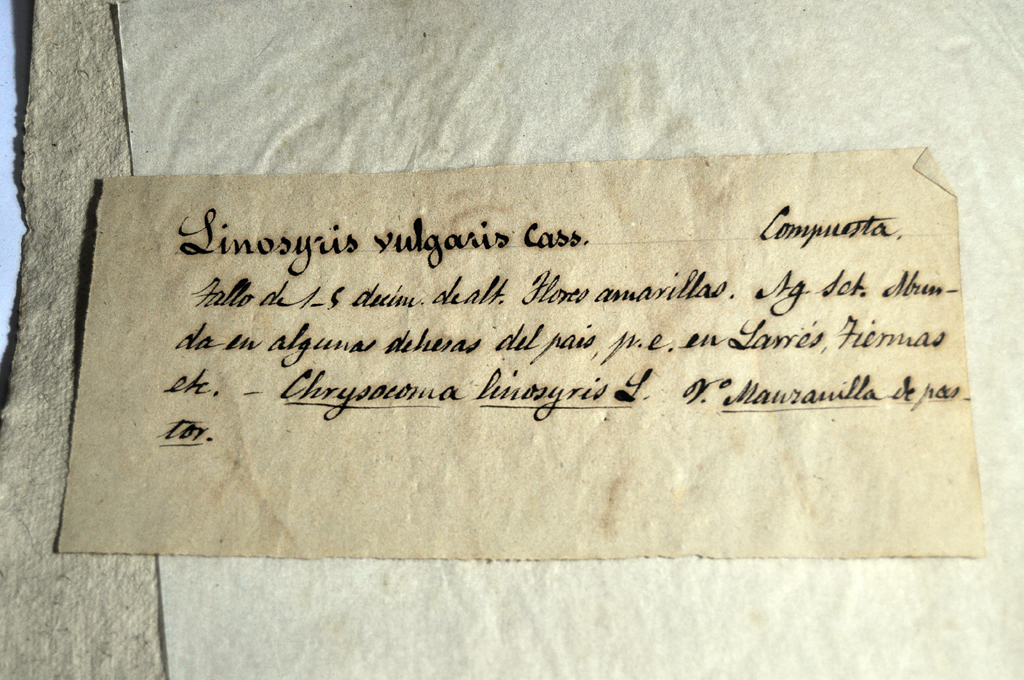 Linosyris vulgaris Cass. Compuesta.
Tallo de 1-5 decim. de alt. Flores amarillas. Ag. Set. Abun-
da en algunas dehesas del pais, p. e. en Larrés, Tiermas
etc. - Chrysocoma linosyris L. V.º Manzanilla de pas-
tor.